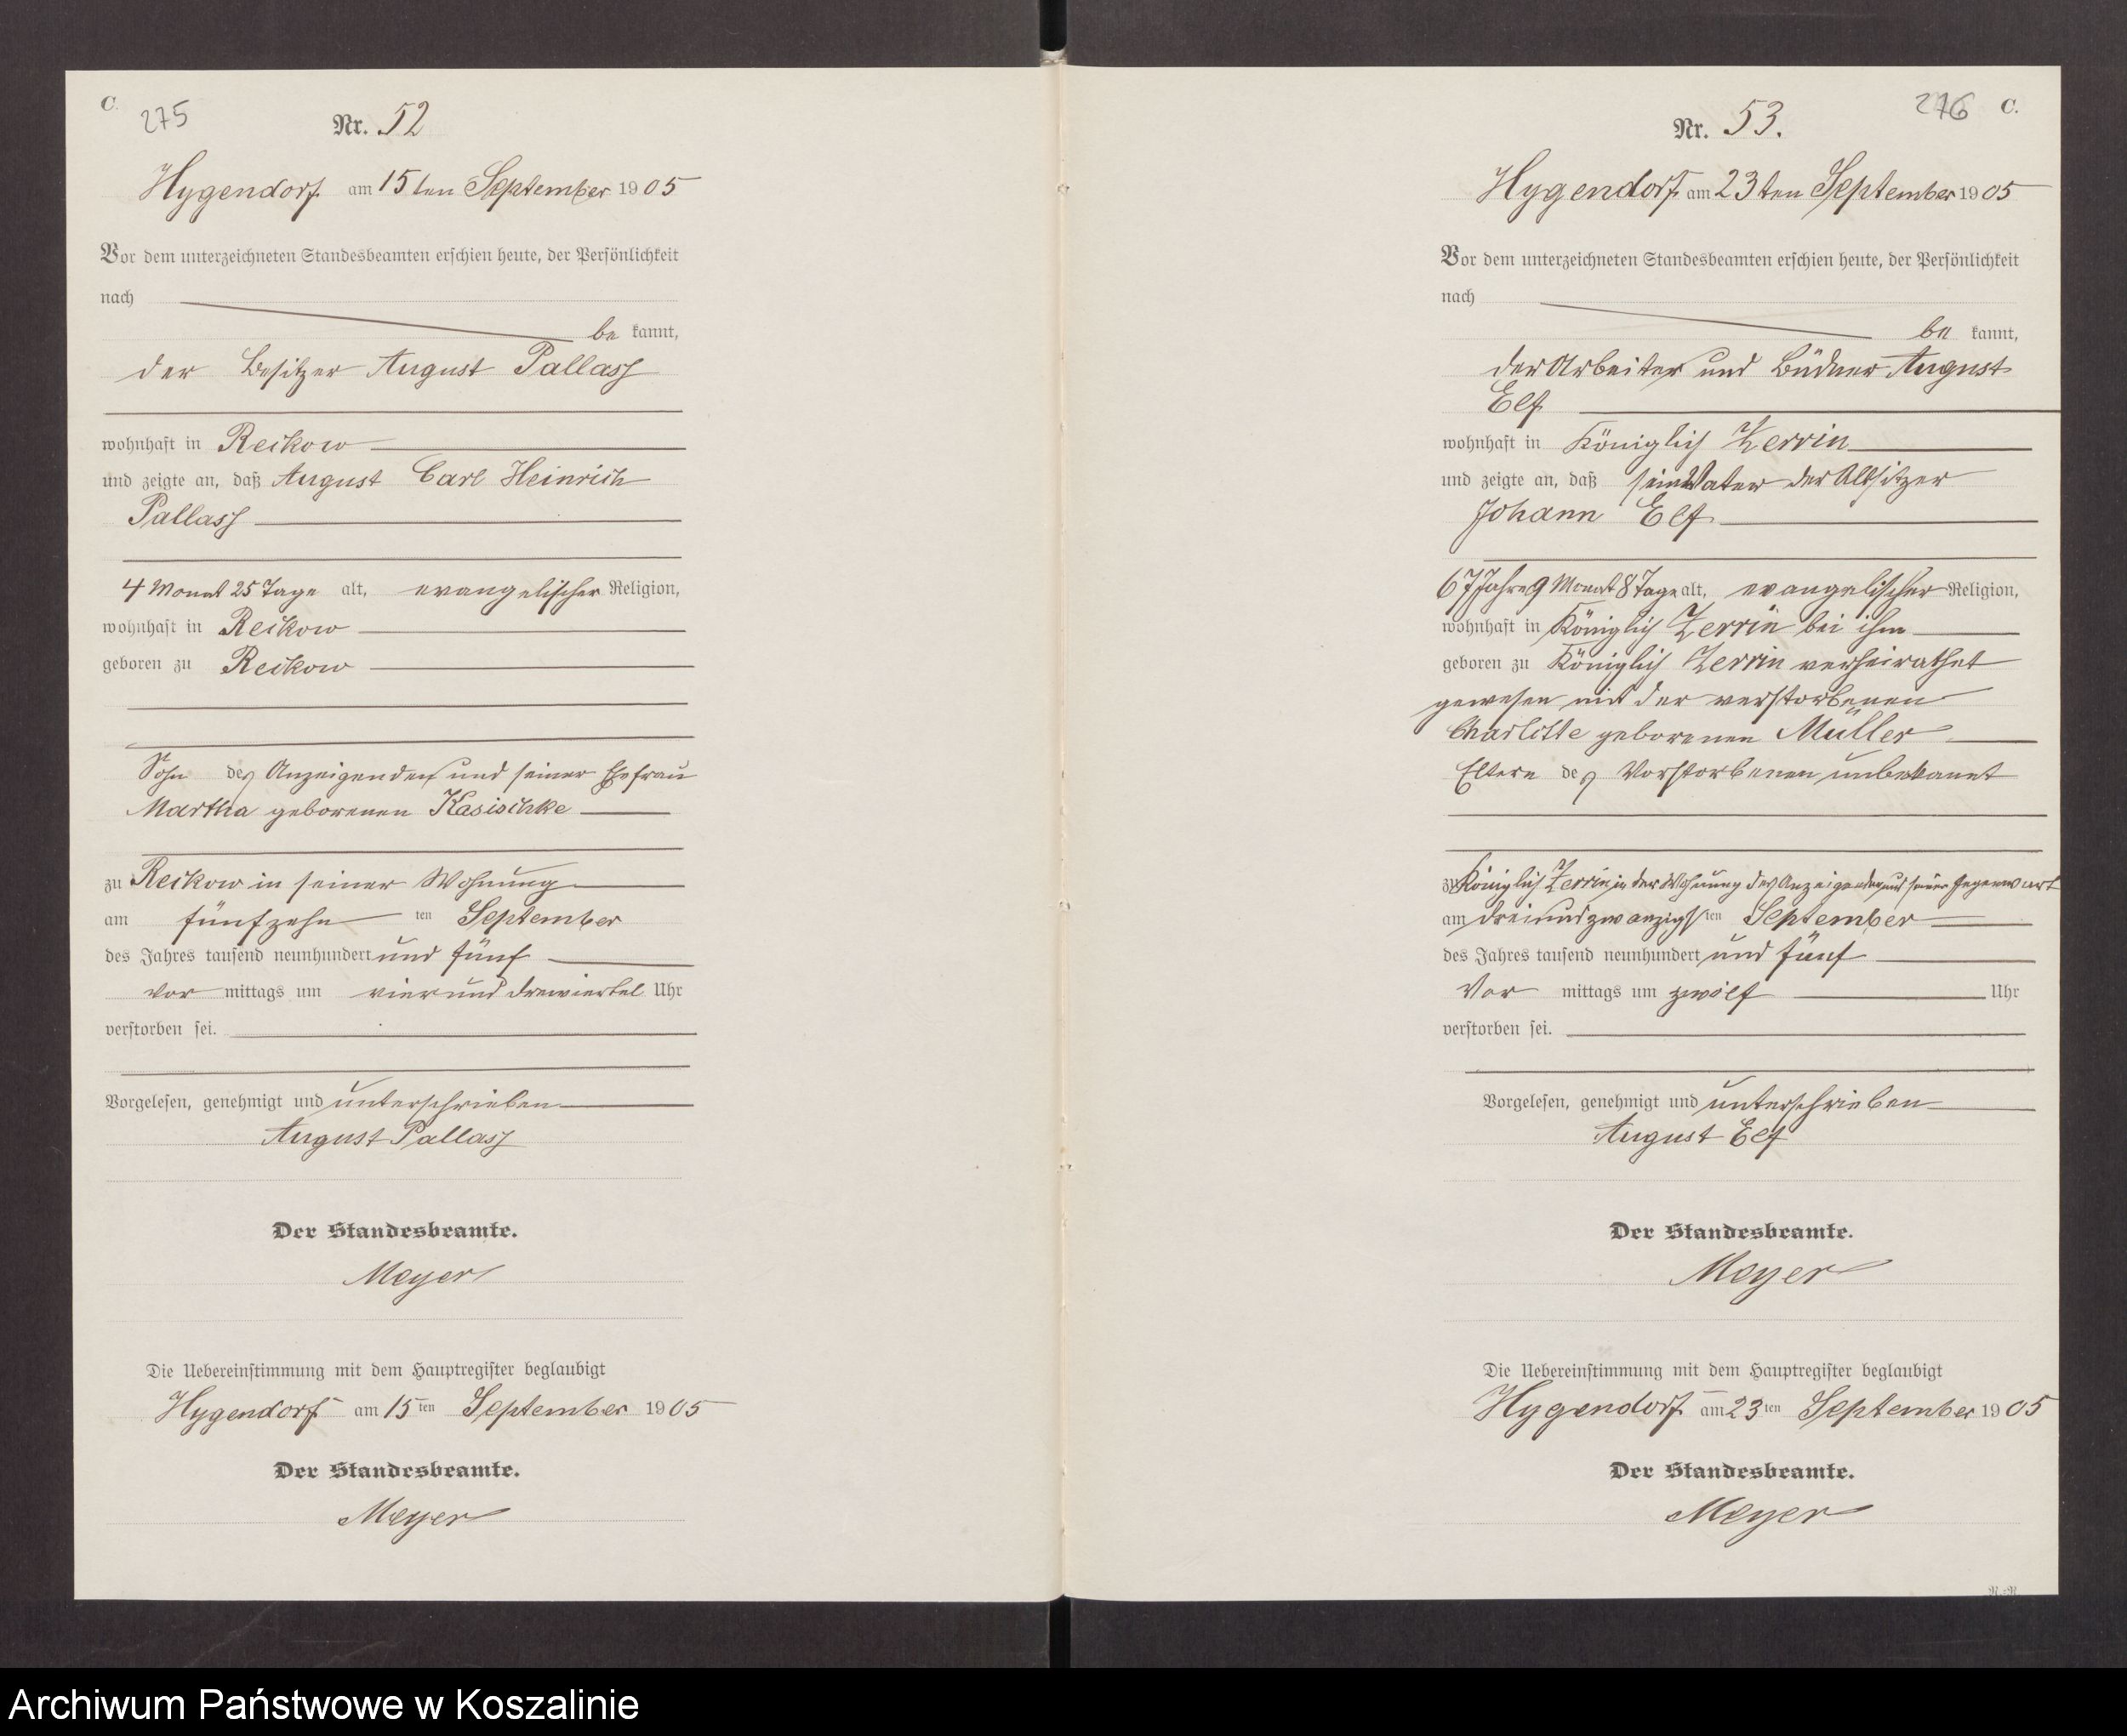 C.
275
Nr. 52
Hygendorf am 15ten September 1905
Vor dem unterzeichneten Standesbeamten erschien heute, der Persönlichkeit
nach
be kannt,
der Besitzer August Pallass
wohnhaft in Reikow
und zeigte an, daß August Carl Heinrich
Pallass
4 Monat 25 Tage alt, evangelischer Religion,
wohnhaft in Reikow
geboren zu Reikow
Sohn des Anzeigenden und seiner Ehefrau
Martha geborenen Kasischke
zu Reikow in seiner Wohnung
am fünfzehn ten September
des Jahres tausend neunhundert und fünf
Vor mittags um vier und dreiviertel Uhr
verstorben sei.
Vorgelesen, genehmigt und unterschrieben
August Pallass
Der Standesbeamte.
Meyer
Die Uebereinstimmung mit dem Hauptregister beglaubigt
Hygendorf am 15ten September 1905
Der Standesbeamte.
Meyer
276 C.
Nr. 53.
Hygendorf am 23ten September 1905
Vor dem unterzeichneten Standesbeamten erschien heute, der Persönlichkeit
nach
be kannt,
der Arbeiter und Büdner August
Elf
wohnhaft in Königlich Zerrin
und zeigte an, daß sein Vater der Altsitzer
Johann Elf
67 Jahre 9 Monat 8 Tage alt, evangelischer Religion,
wohnhaft in Königlich Zerrin bei ihm
geboren zu Königlich Zerrin verheirathet
gewesen mit der verstorbenen
Charlotte geborenen Müller
Eltern des Verstorbenen unbekannt
zu Königlich Zerrin in der Wohnung des Anzeigenden und seiner Gegenwart
am dreiundzwanzigsten September
des Jahres tausend neunhundert und fünf
Vor mittags um zwölf Uhr
verstorben sei.
Vorgelesen, genehmigt und unterschrieben
August Elf
Der Standesbeamte.
Meyer
Die Uebereinstimmung mit dem Hauptregister beglaubigt
Hygendorf am 23ten September 1905
Der Standesbeamte.
Meyer
Archiwum Państwowe w Koszalinie